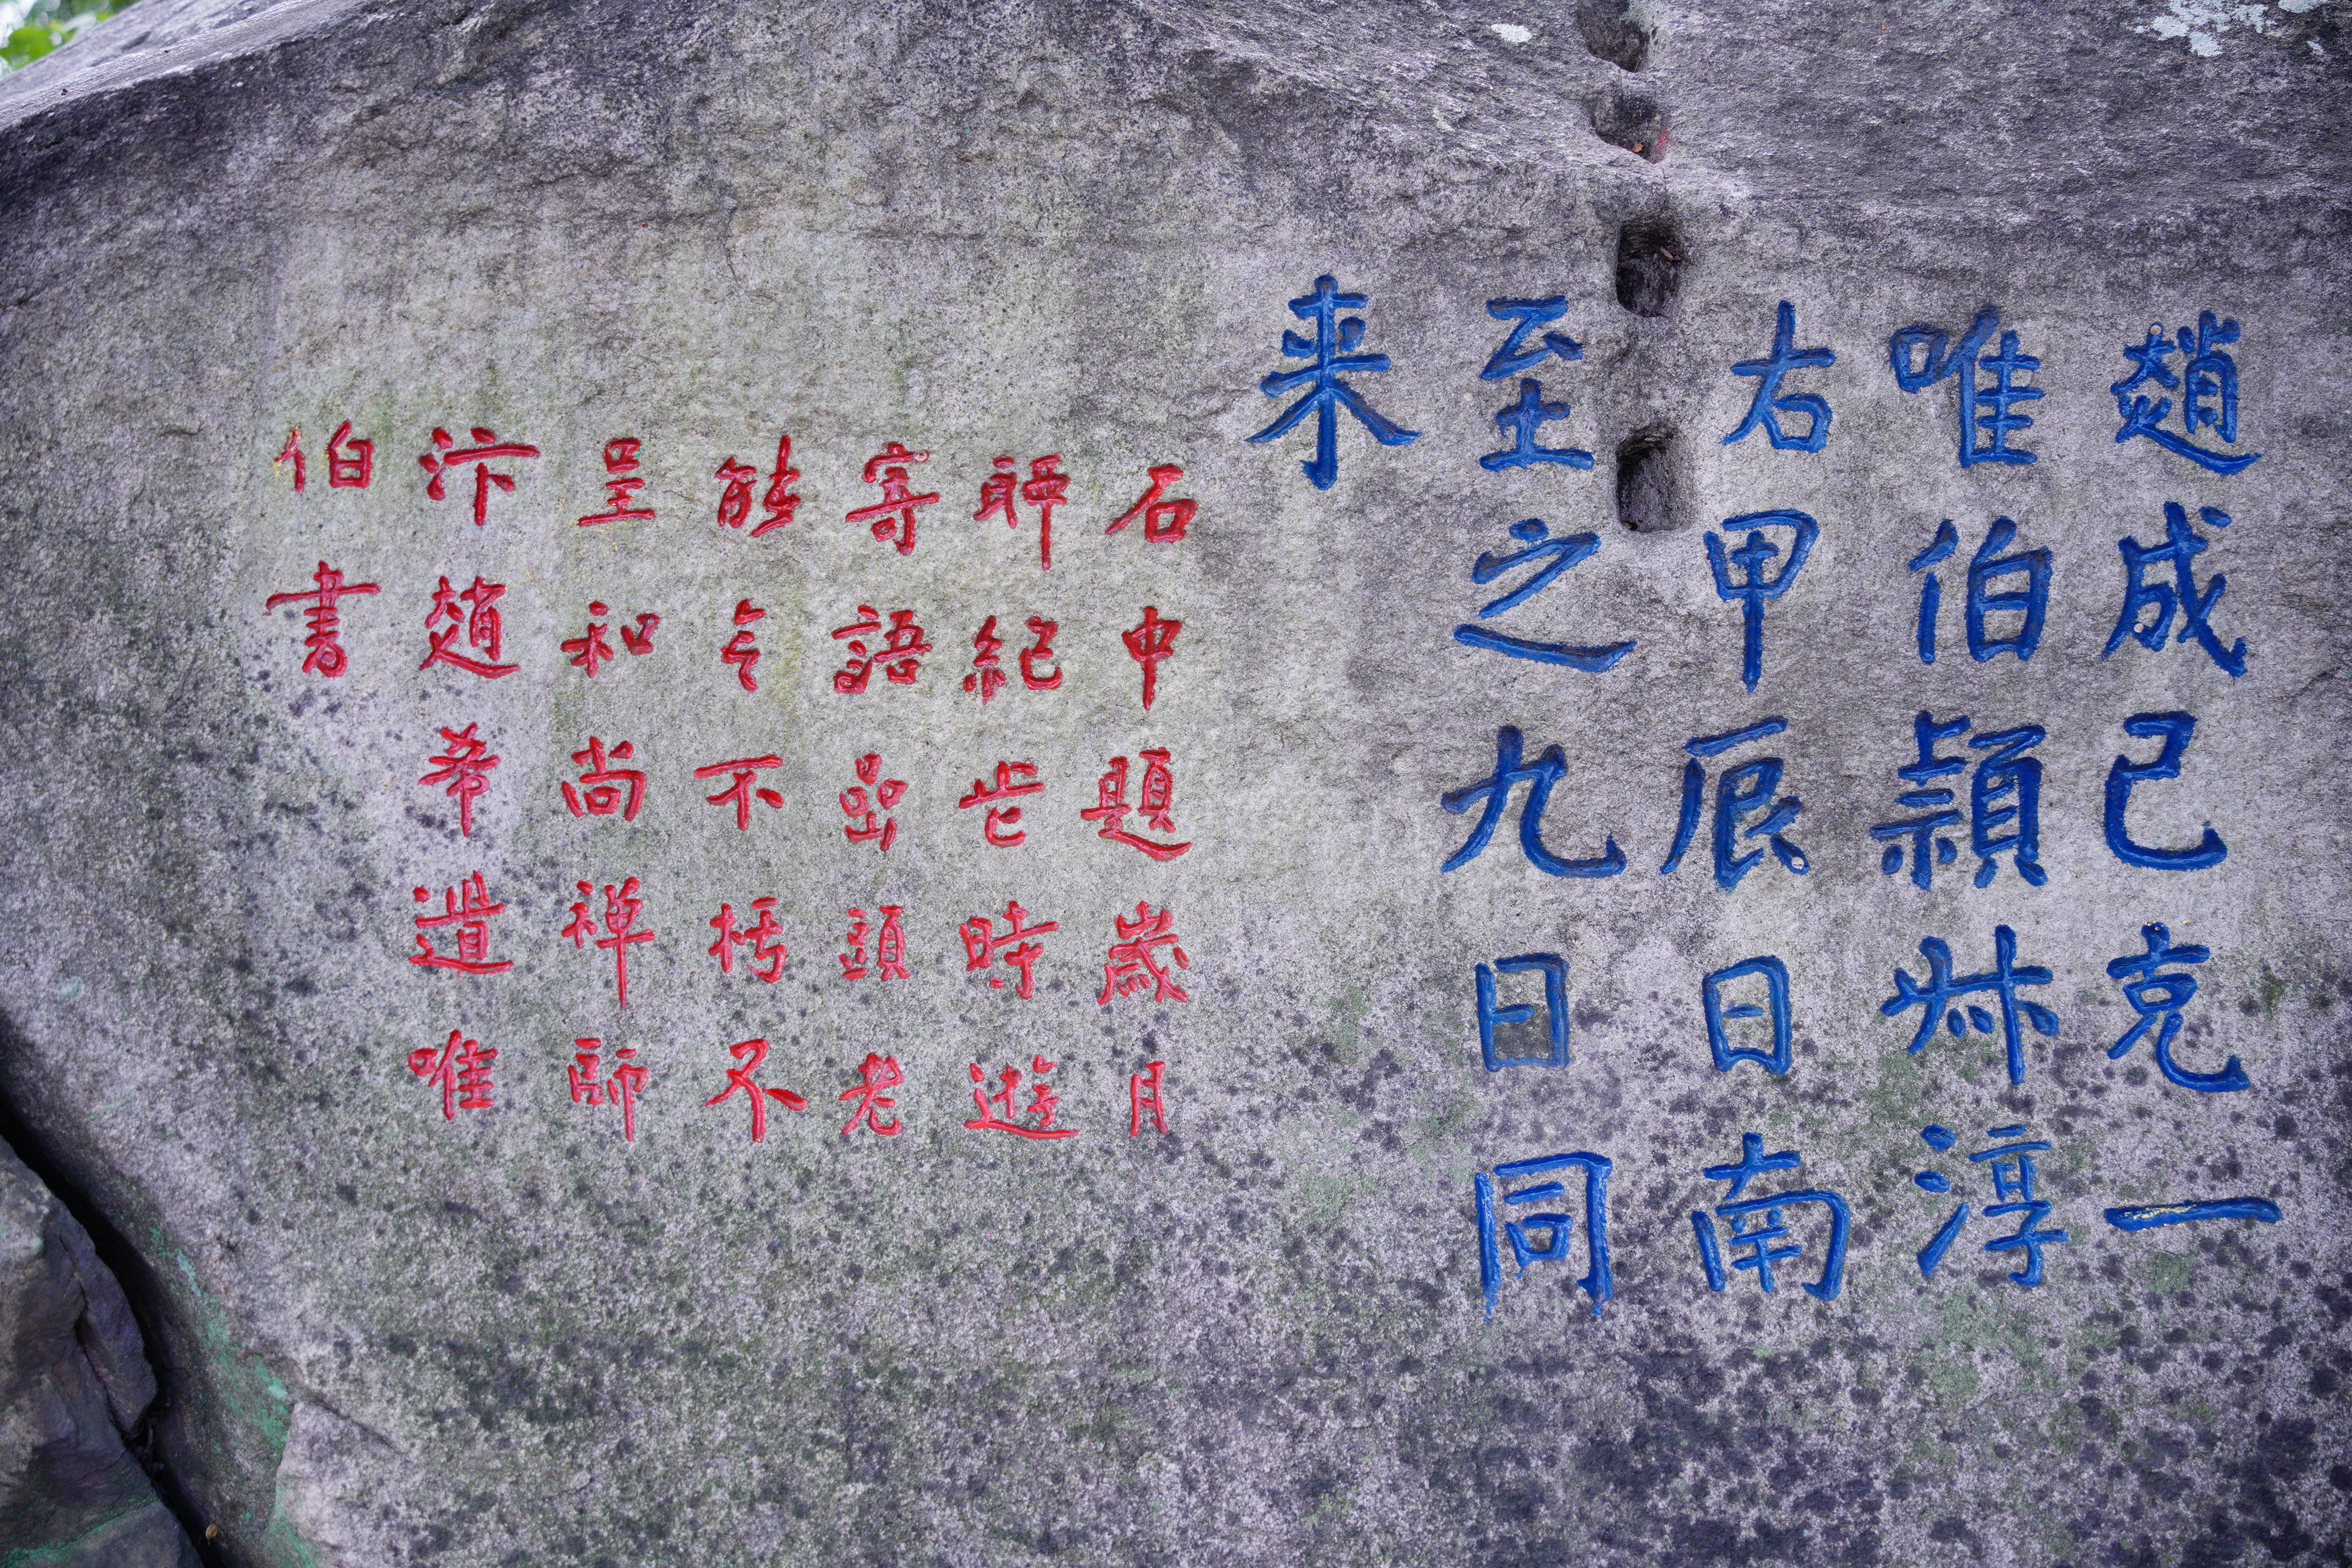 趙成己克一
唯伯頴叔淳
右甲辰日南
至之九日同
来
石中題歲月
聊紀此時遊
寄語嵓頭老
能令不朽不
呈和尚禅師
汴趙希遺唯
伯書